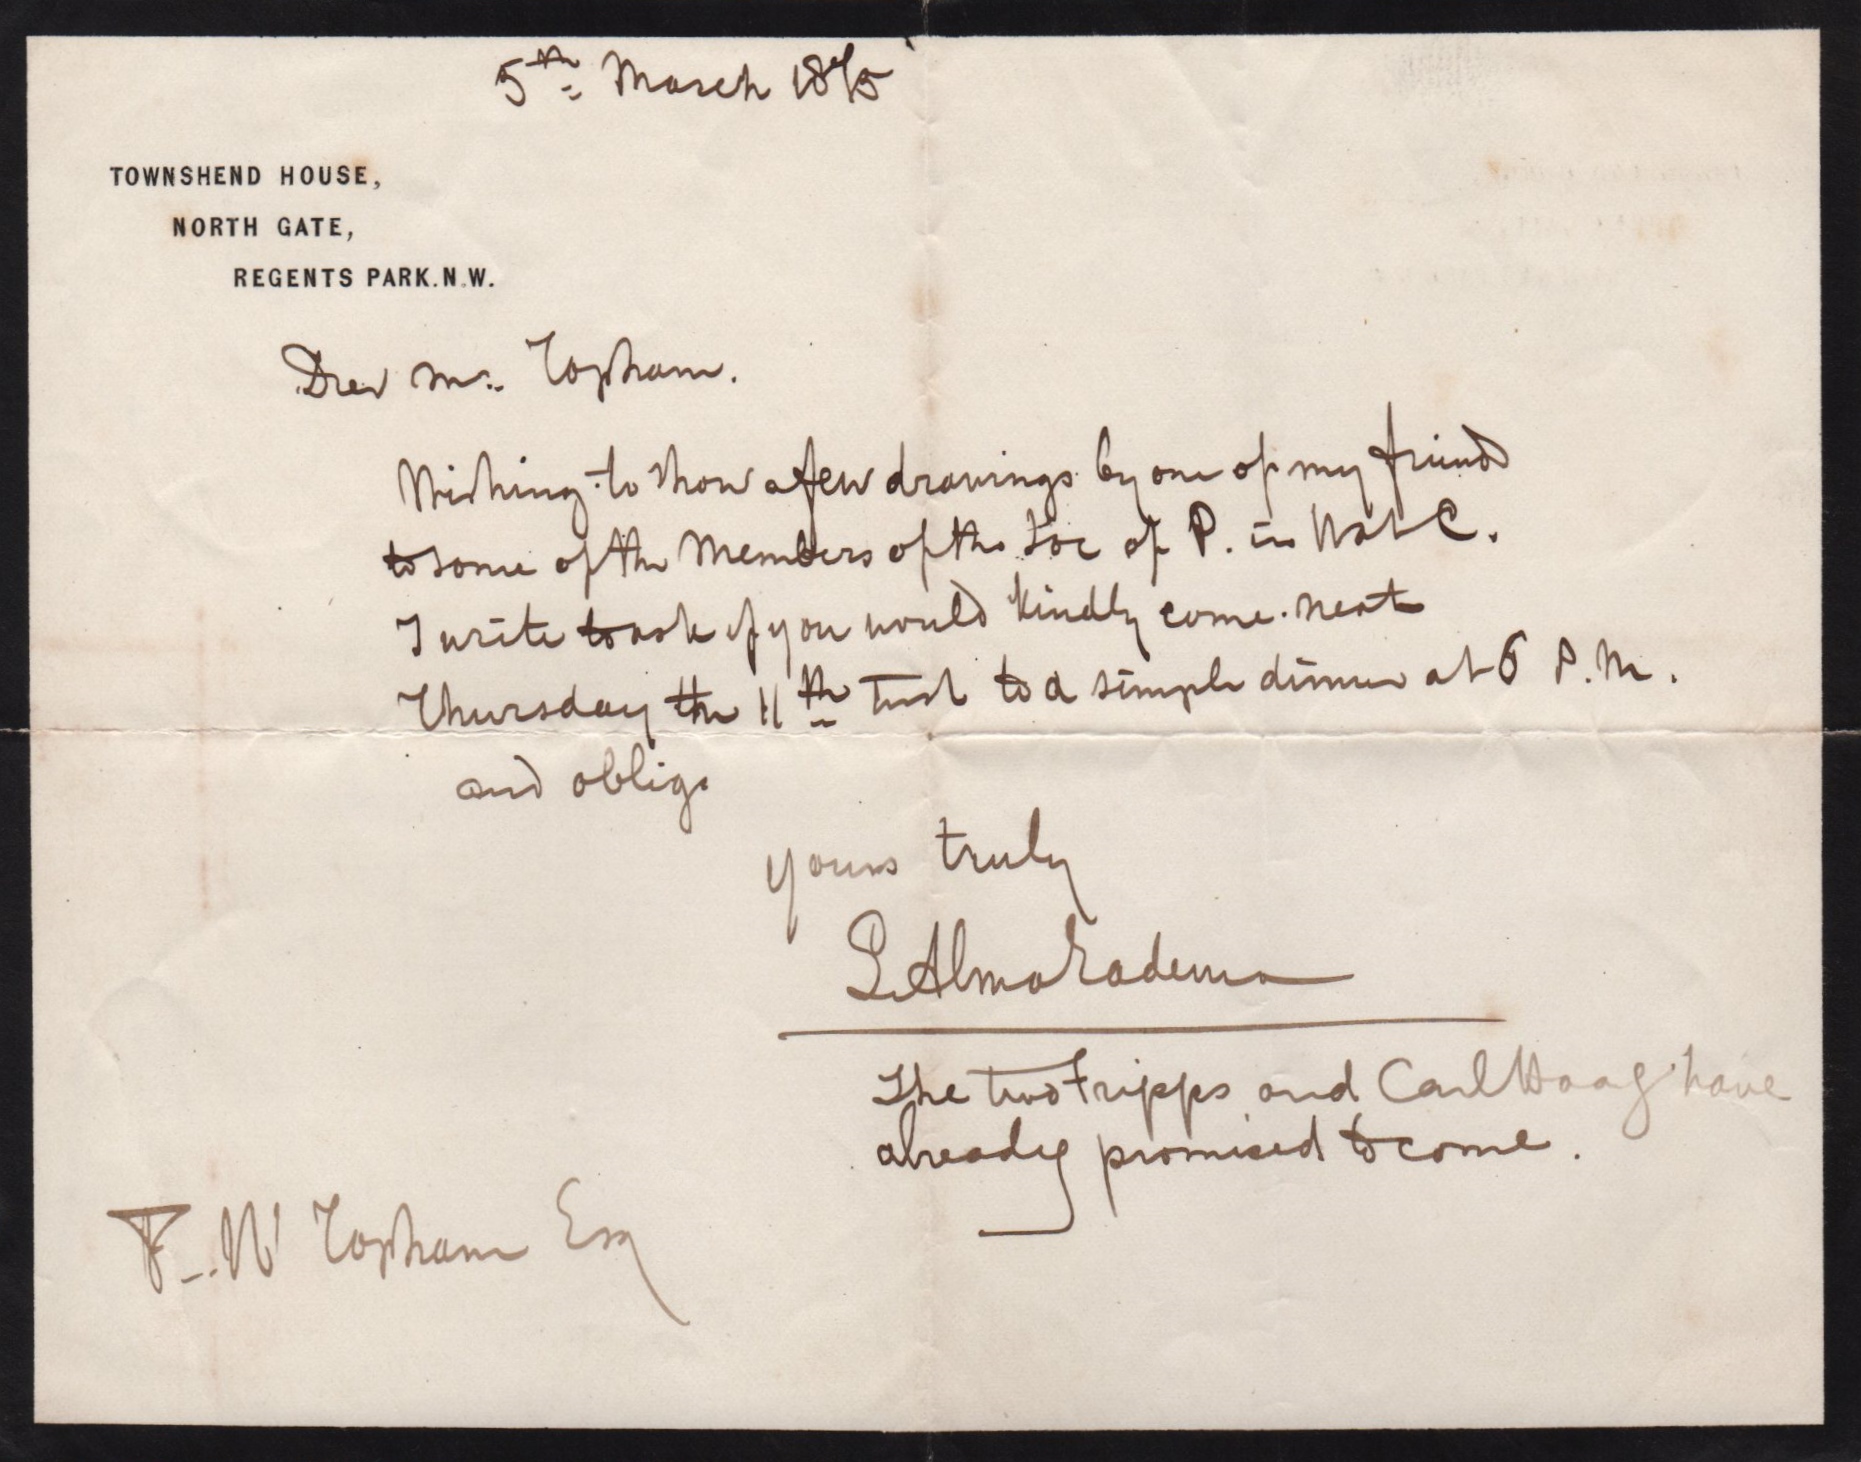 5th March 1875
TOWNSHEND HOUSE,
NORTH GATE,
REGENTS PARK. N.W.
Dear Mr. Topham.
Wishing to show a few drawings by one of my friend
to some of the Members of the Soc of P. in Wat C.
I write to ask if you would kindly come next
Thursday the 11th Inst to a simple dinner at 6 P.M.
and oblige
yours truly
L. Alma Tadema
The two Fripps and Carl Haag have
already promised to come.
F. W Topham Esq